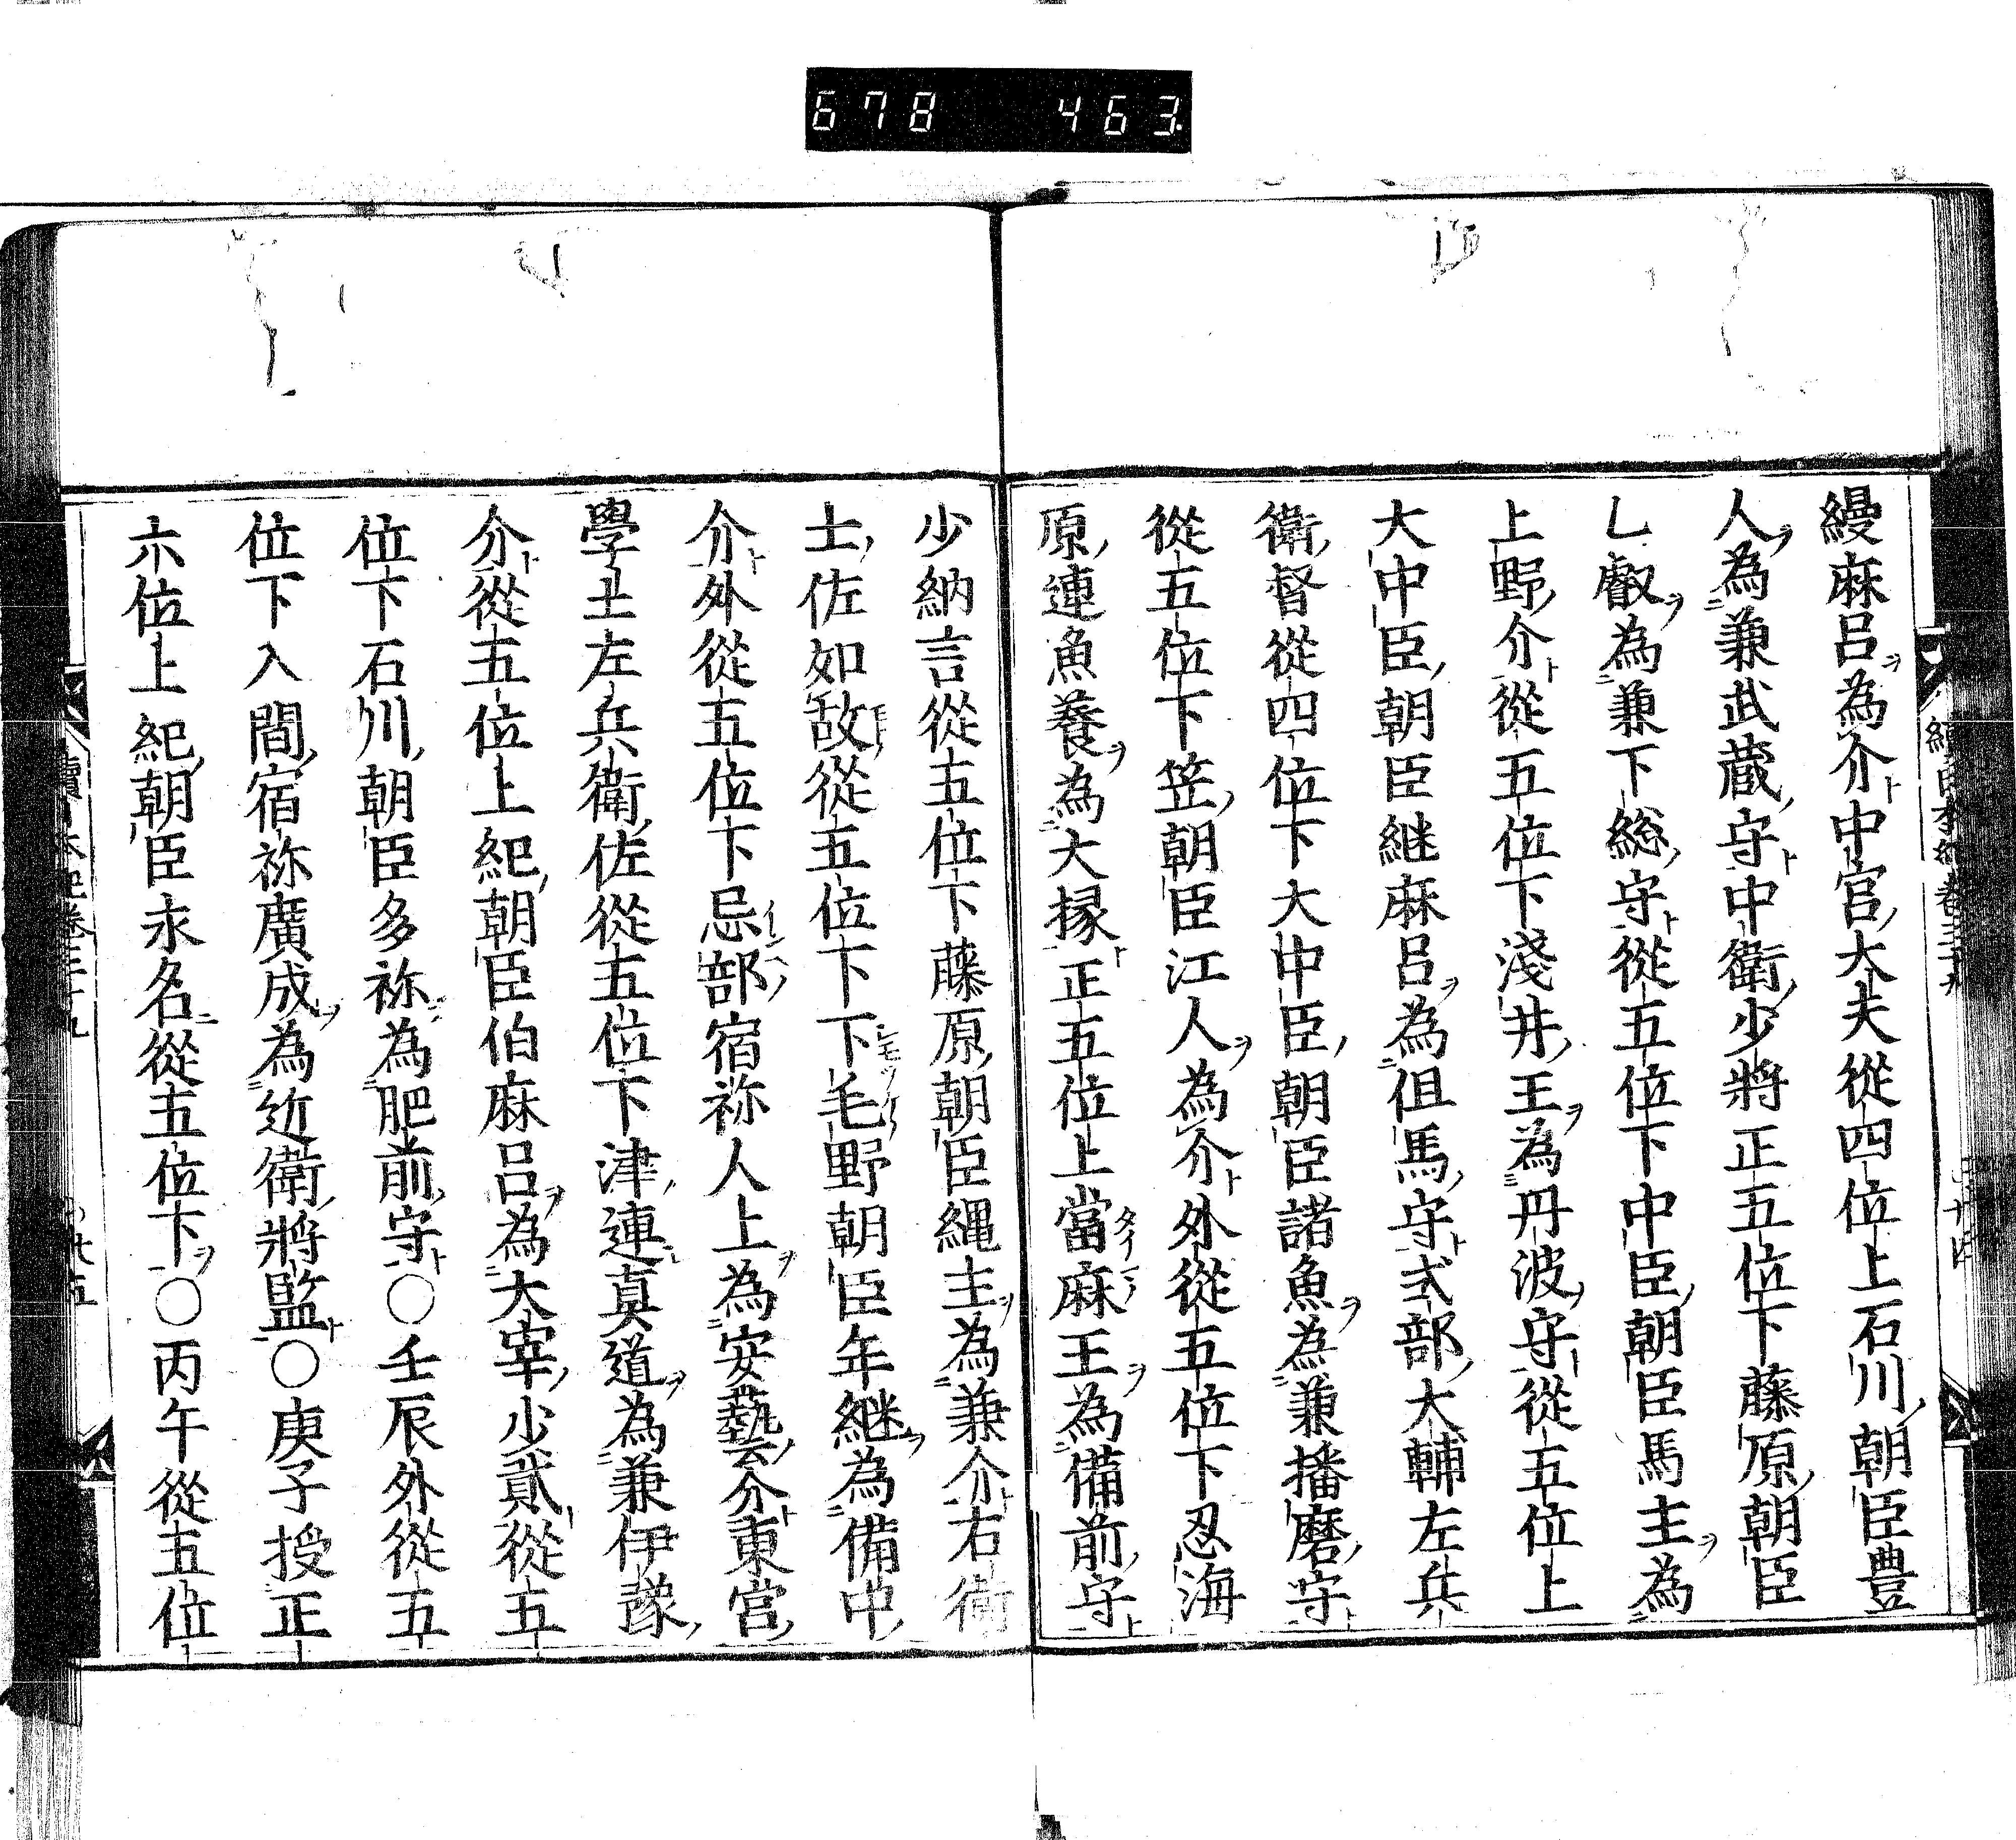 678 463
縵麻呂為介中宮大夫從四位上石川朝臣豊
人為兼武蔵守中衛少將正五位下藤原朝臣
乚叡為兼下総守從五位下中臣朝臣馬主為
上野介從五位下淺井王為丹波守從五位上
大中臣朝臣継麻呂為但馬守式部大輔左兵
衛督從四位下大中臣朝臣諸魚為兼播磨守
從五位下笠朝臣江人為介外從五位下忍海
原連魚養為大掾正五位上當麻王為備前守
少納言從五位下藤原朝臣縄主為兼介右衛
士佐如故從五位下下毛野朝臣年継為備中
介外從五位下忌部宿祢人上為安藝介東宮
學士左兵衛佐從五位下津連真道為兼伊豫
介從五位上紀朝臣伯麻呂為大宰少貳從五
位下石川朝臣多祢為肥前守〇壬辰外從五
位下入間宿祢廣成為近衛將監〇庚子授正
六位上紀朝臣永名從五位下〇丙午從五位